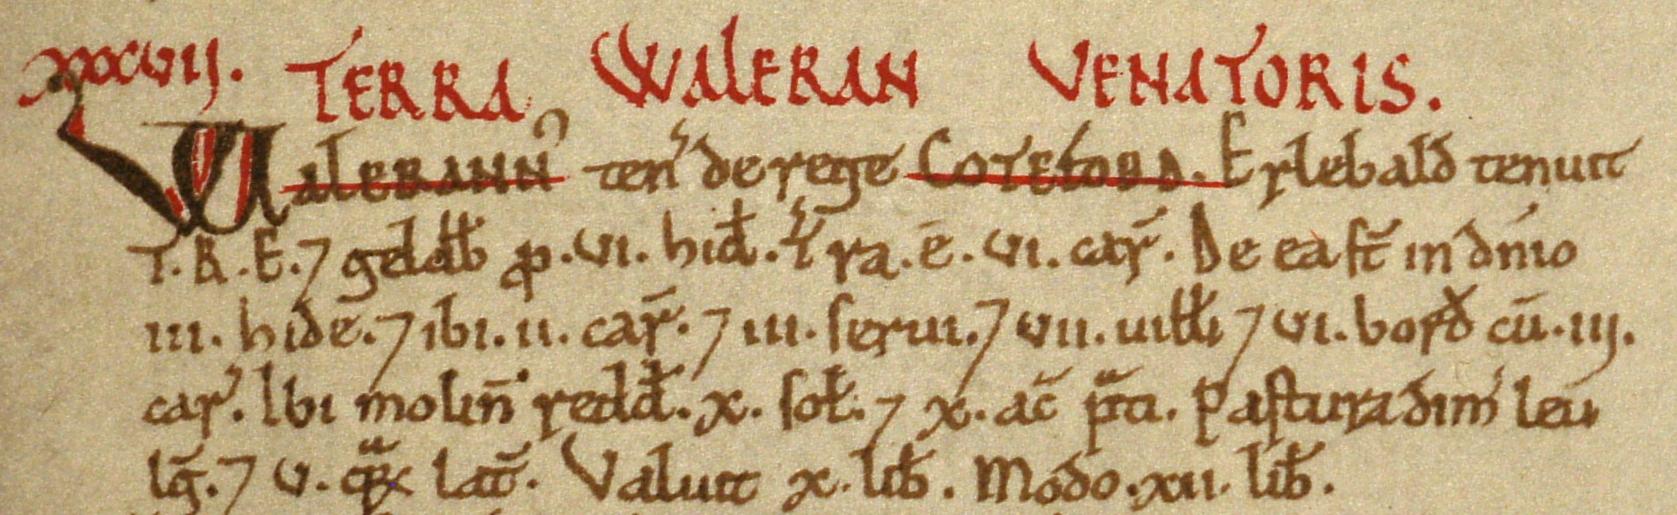 XXXVII. TERRA WALERAN VENATORIS.
WALERANN' ten' de rege COTEFORD. Erlebald tenuit
T.R.E. ⁊ geldb̄ ꝓ .vi. hid̄. T'ra .ē .vi. car̄. De ea st̄ in dn̄io
iii. hidę. ⁊ ibi .ii. car̄. ⁊ iii. serui. ⁊ vii. uilłi ⁊ vi. bord̄ cū .iii.
car'. Ibi molin̄ redd̄. x. soł. ⁊ x. ac̄ p̄ti. Pastura dim̄ leu
lḡ. ⁊ v. qꝛ lat̄. Valuit x. lib̄. Modo .xii. lib̄.